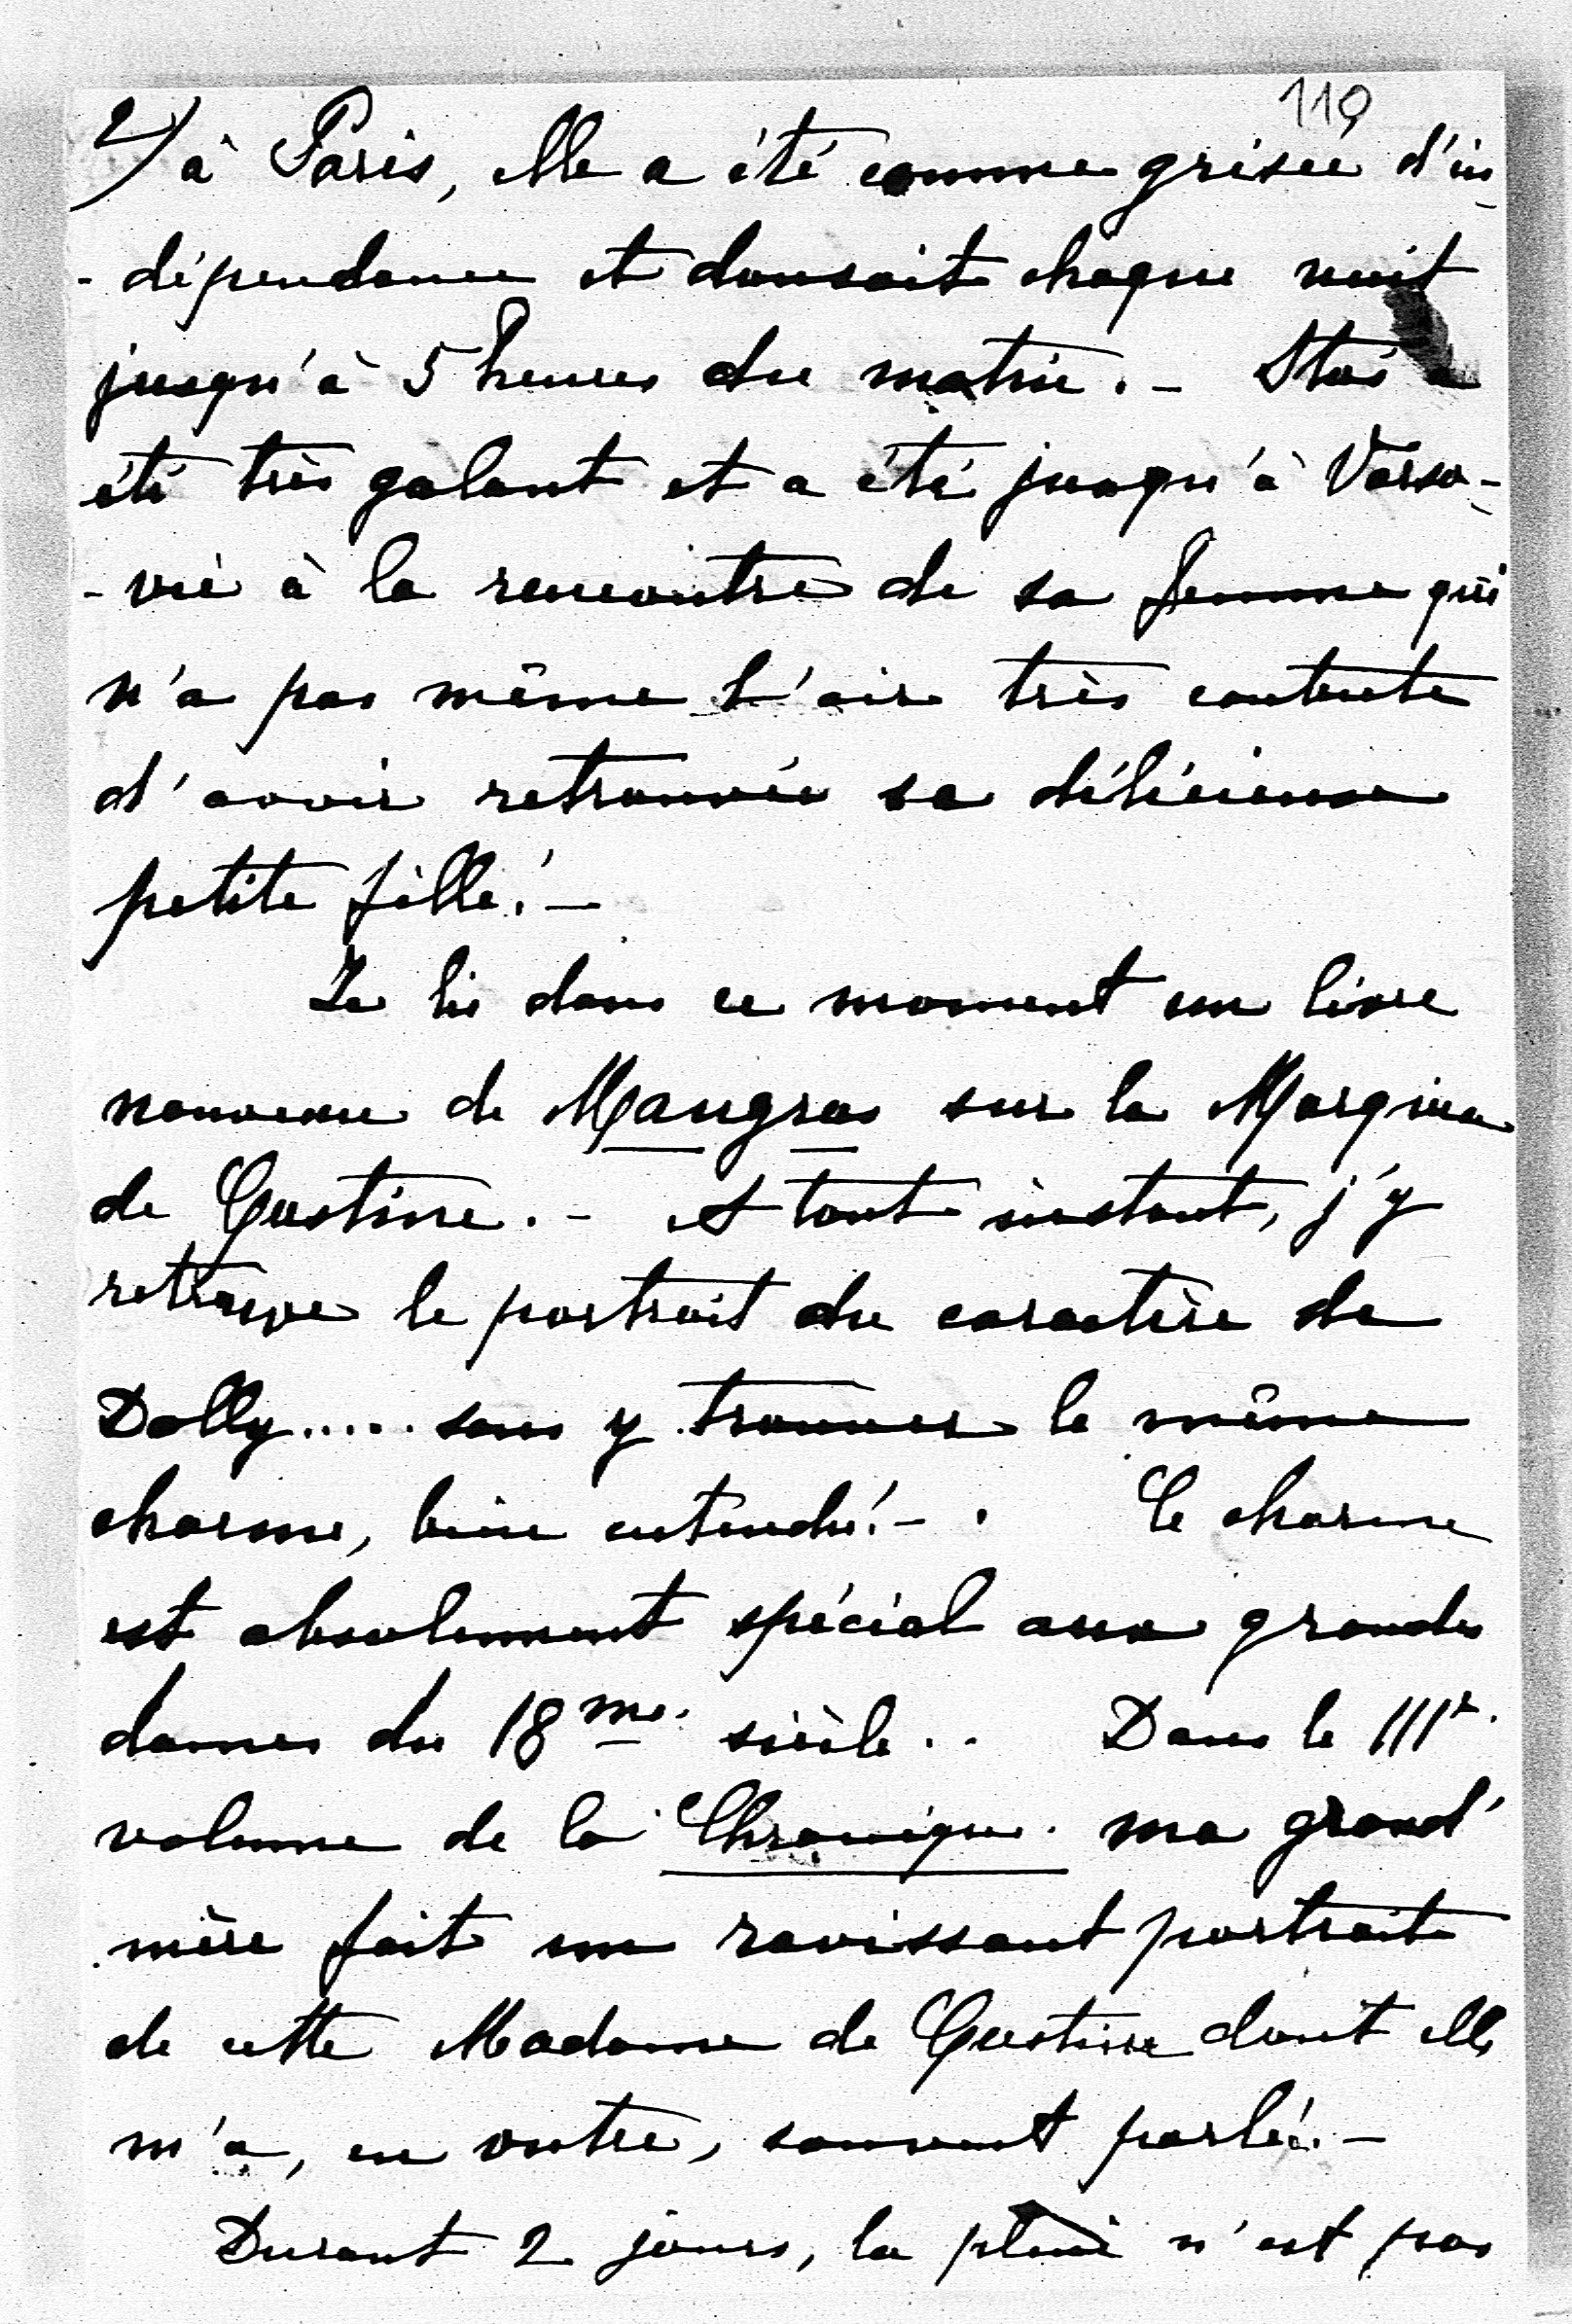 119
2) à Paris, elle a été comme grisée d'in-
-dépendance et dansait chaque nuit
jusqu'à 5 heures du matin. - Stas a
été très galant et a été jusqu'à Varso-
-vie à la rencontre de sa femme qui
n'a pas même l'air très contente
d'avoir retrouvée sa délicieuse
petite fille! -
Je lis dans ce moment un livre
nouveau de Maugras sur la Marquise
de Custine. - A tout instant, j'y
retrouve le portrait du caractère de
Dolly..... sans y trouver le même
charme, bien entendu! - . Ce charme
est absolument spécial aux grandes
dames du 18me. siècle.. Dans le IIIe.
volume de la Chronique. ma grand'
mère fait un ravissant portrait
de cette Madame de Custine dont elle
m'a, en outre, souvent parlé. -
Durant 2 jours, la pluie n'est pas